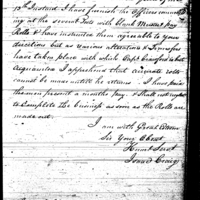 13th Instant. I have furnish the officers commanding
at the several Forts with Blank Muster & Pay
Rolls & have instructed them agreeable to your
directions but as various alterations & Transfers
have taken place with which Capt Crawford is best
Acquainted I apprehend that accurate rolls
cannot be made untill he returns. I have paid
them on present a months Pay. & Shall not neglect
to Compleate the business as soon as the Rolls are
made out.
I am with Great Esteem
Sir Your Obent
Humbl Servt
Isaac Craig